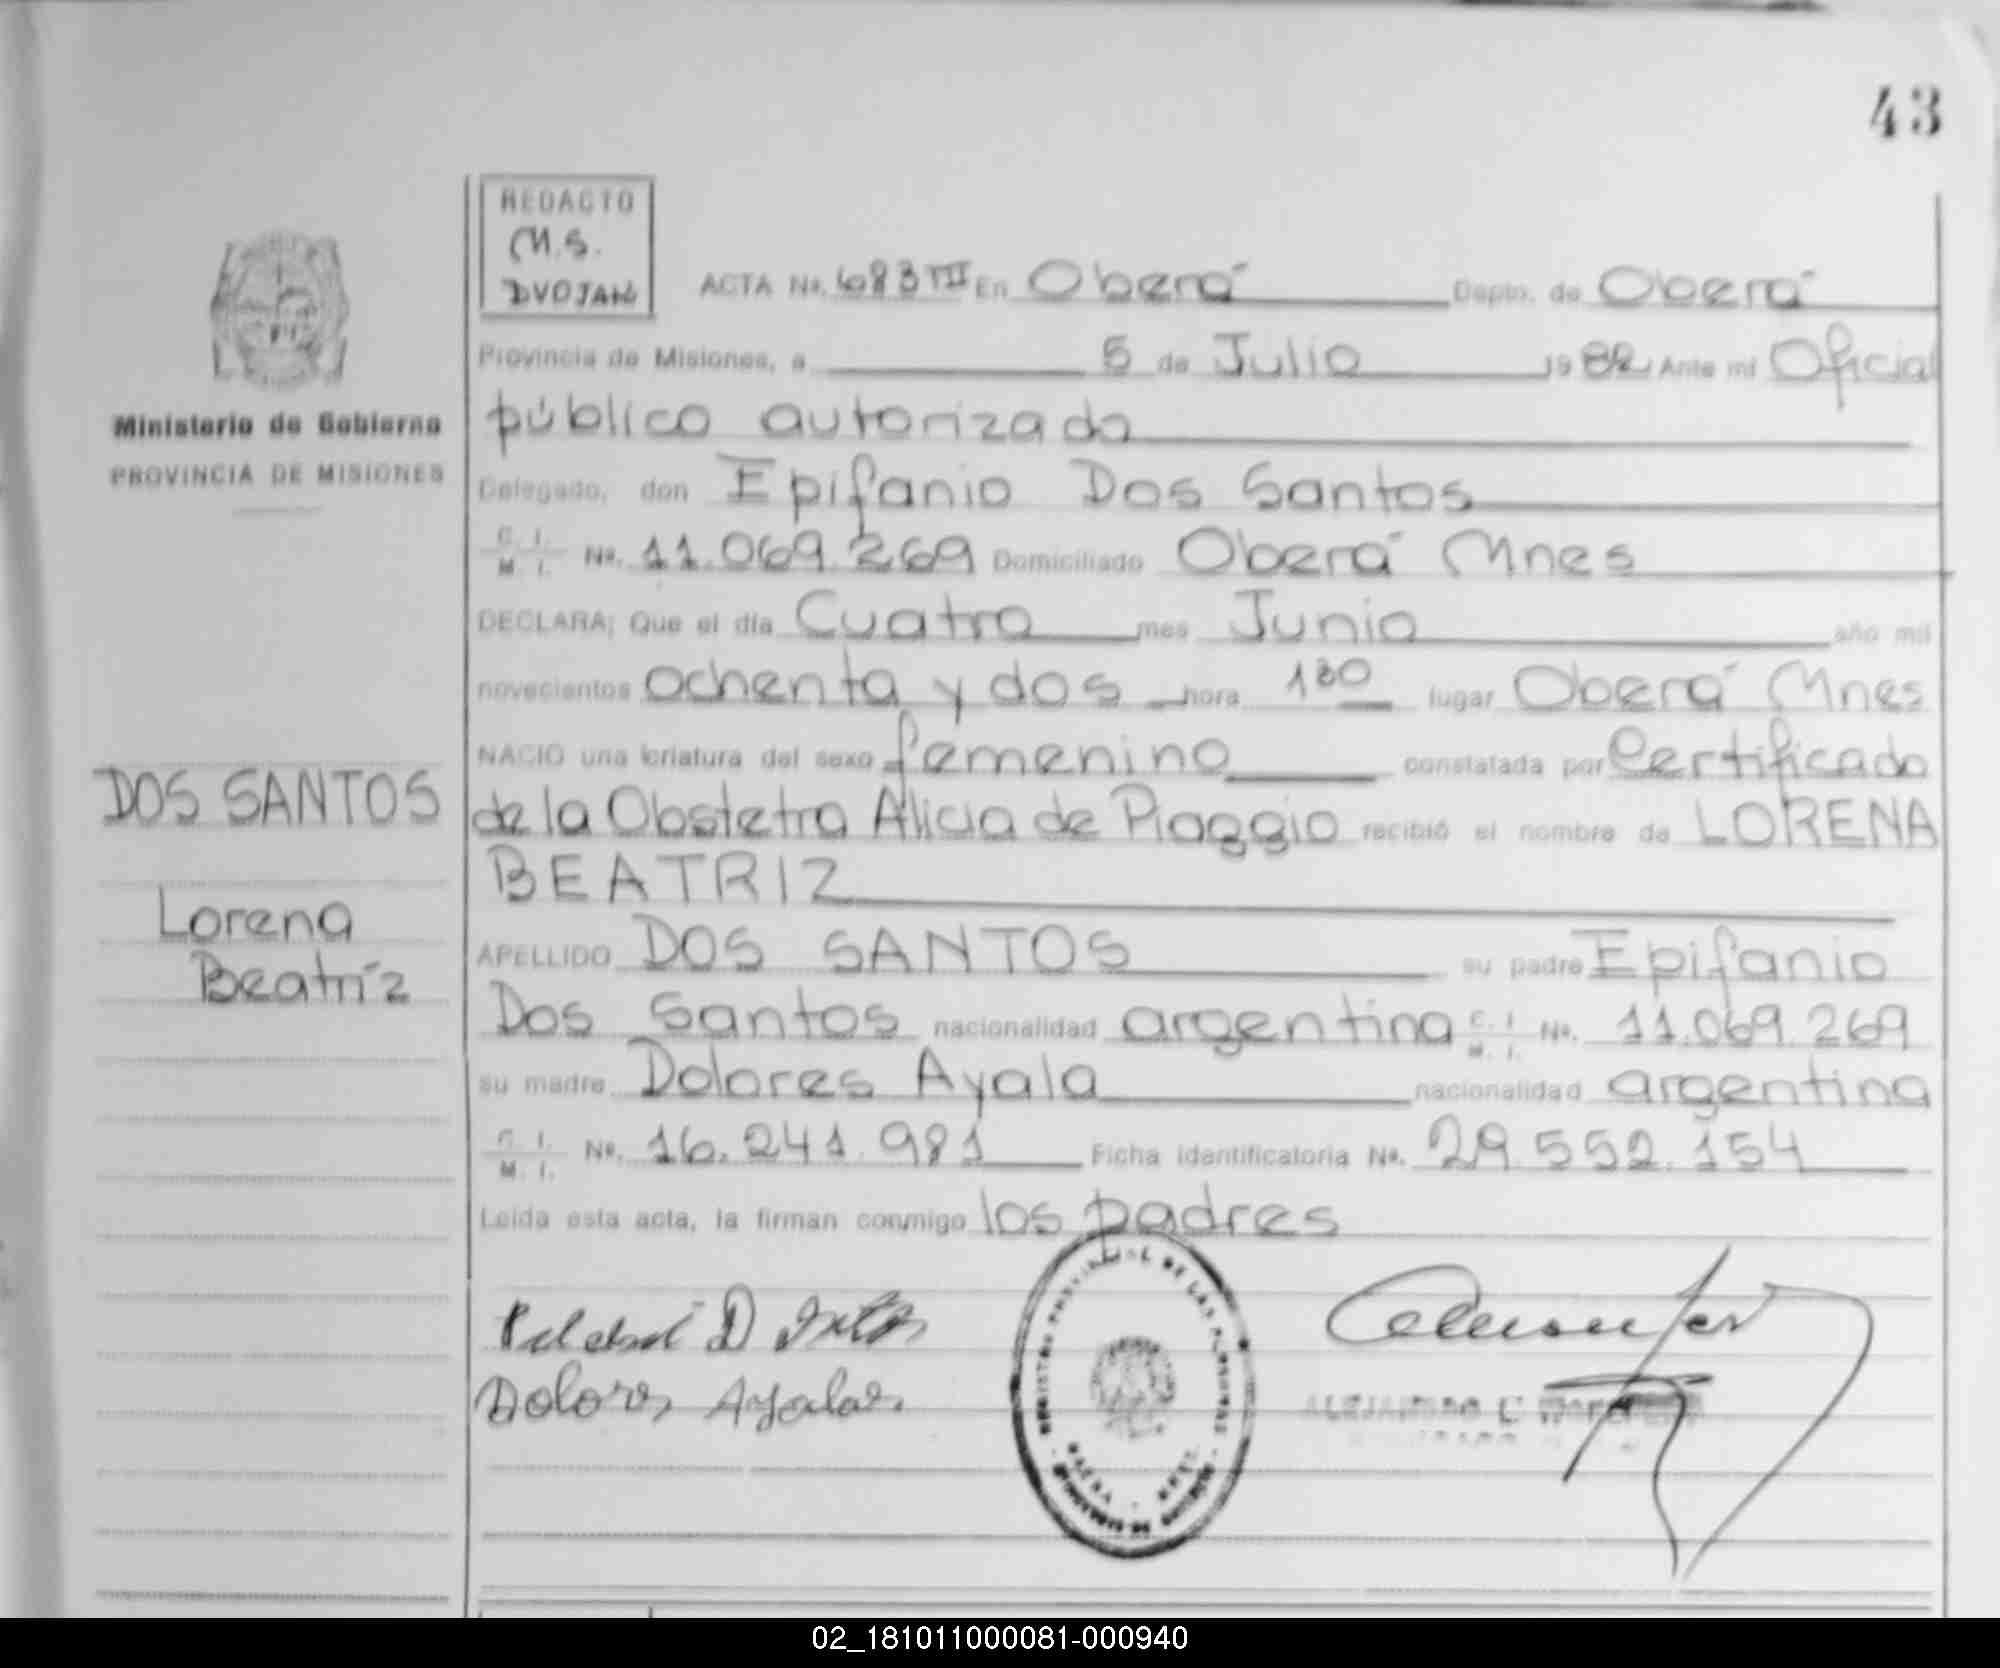 43
REDACTO
M.S.
DVOJAK
ACTA No. 683 TIII En Oberá Depto. de Oberá
Provincia de Misiones, a 5 de Julio 1982 Ante mi Oficial
Ministerio de Gobierno
PROVINCIA DE MISIONES
público autorizado
Delegado, don Epifanio Dos Santos
C. I. M. I. No. 11.069.269 Domiciliado Oberá Mnes
DECLARA; Que el día Cuatro mes Junio año mil
novecientos ochenta y dos hora 130 lugar Oberá Mnes
NACIO una criatura del sexo femenino constatada por Certificado
DOS SANTOS
de la Obstetra Alicia de Piaggio recibió el nombre de LORENA
BEATRIZ
Lorena
Beatríz
APELLIDO DOS SANTOS su padre Epifanio
Dos Santos nacionalidad argentina C. I. M. I. No. 11.069.269
su madre Dolores Ayala nacionalidad argentina
C. I. M. I. No. 16.241.981 Ficha identificatoria No. 29.552.154
Leída esta acta, la firman conmigo los padres
Dolores Ayala
02_181011000081-000940